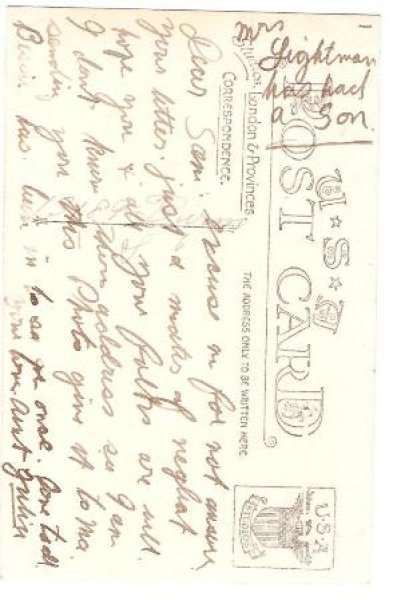 Mrs
Lightman
has had
a Son.
U.S.A
POST CARD
London & Provinces
CORRESPONDENCE.
THE ADDRESS ONLY TO BE WRITTEN HERE
U.S.A
Dear Sam. for not
your letter. just a of neglect
hope you & all your folks are well.
I don't know address so I am
sending you this Photo give it to ma.
has been in to see once. love to all
your Aunt Julia